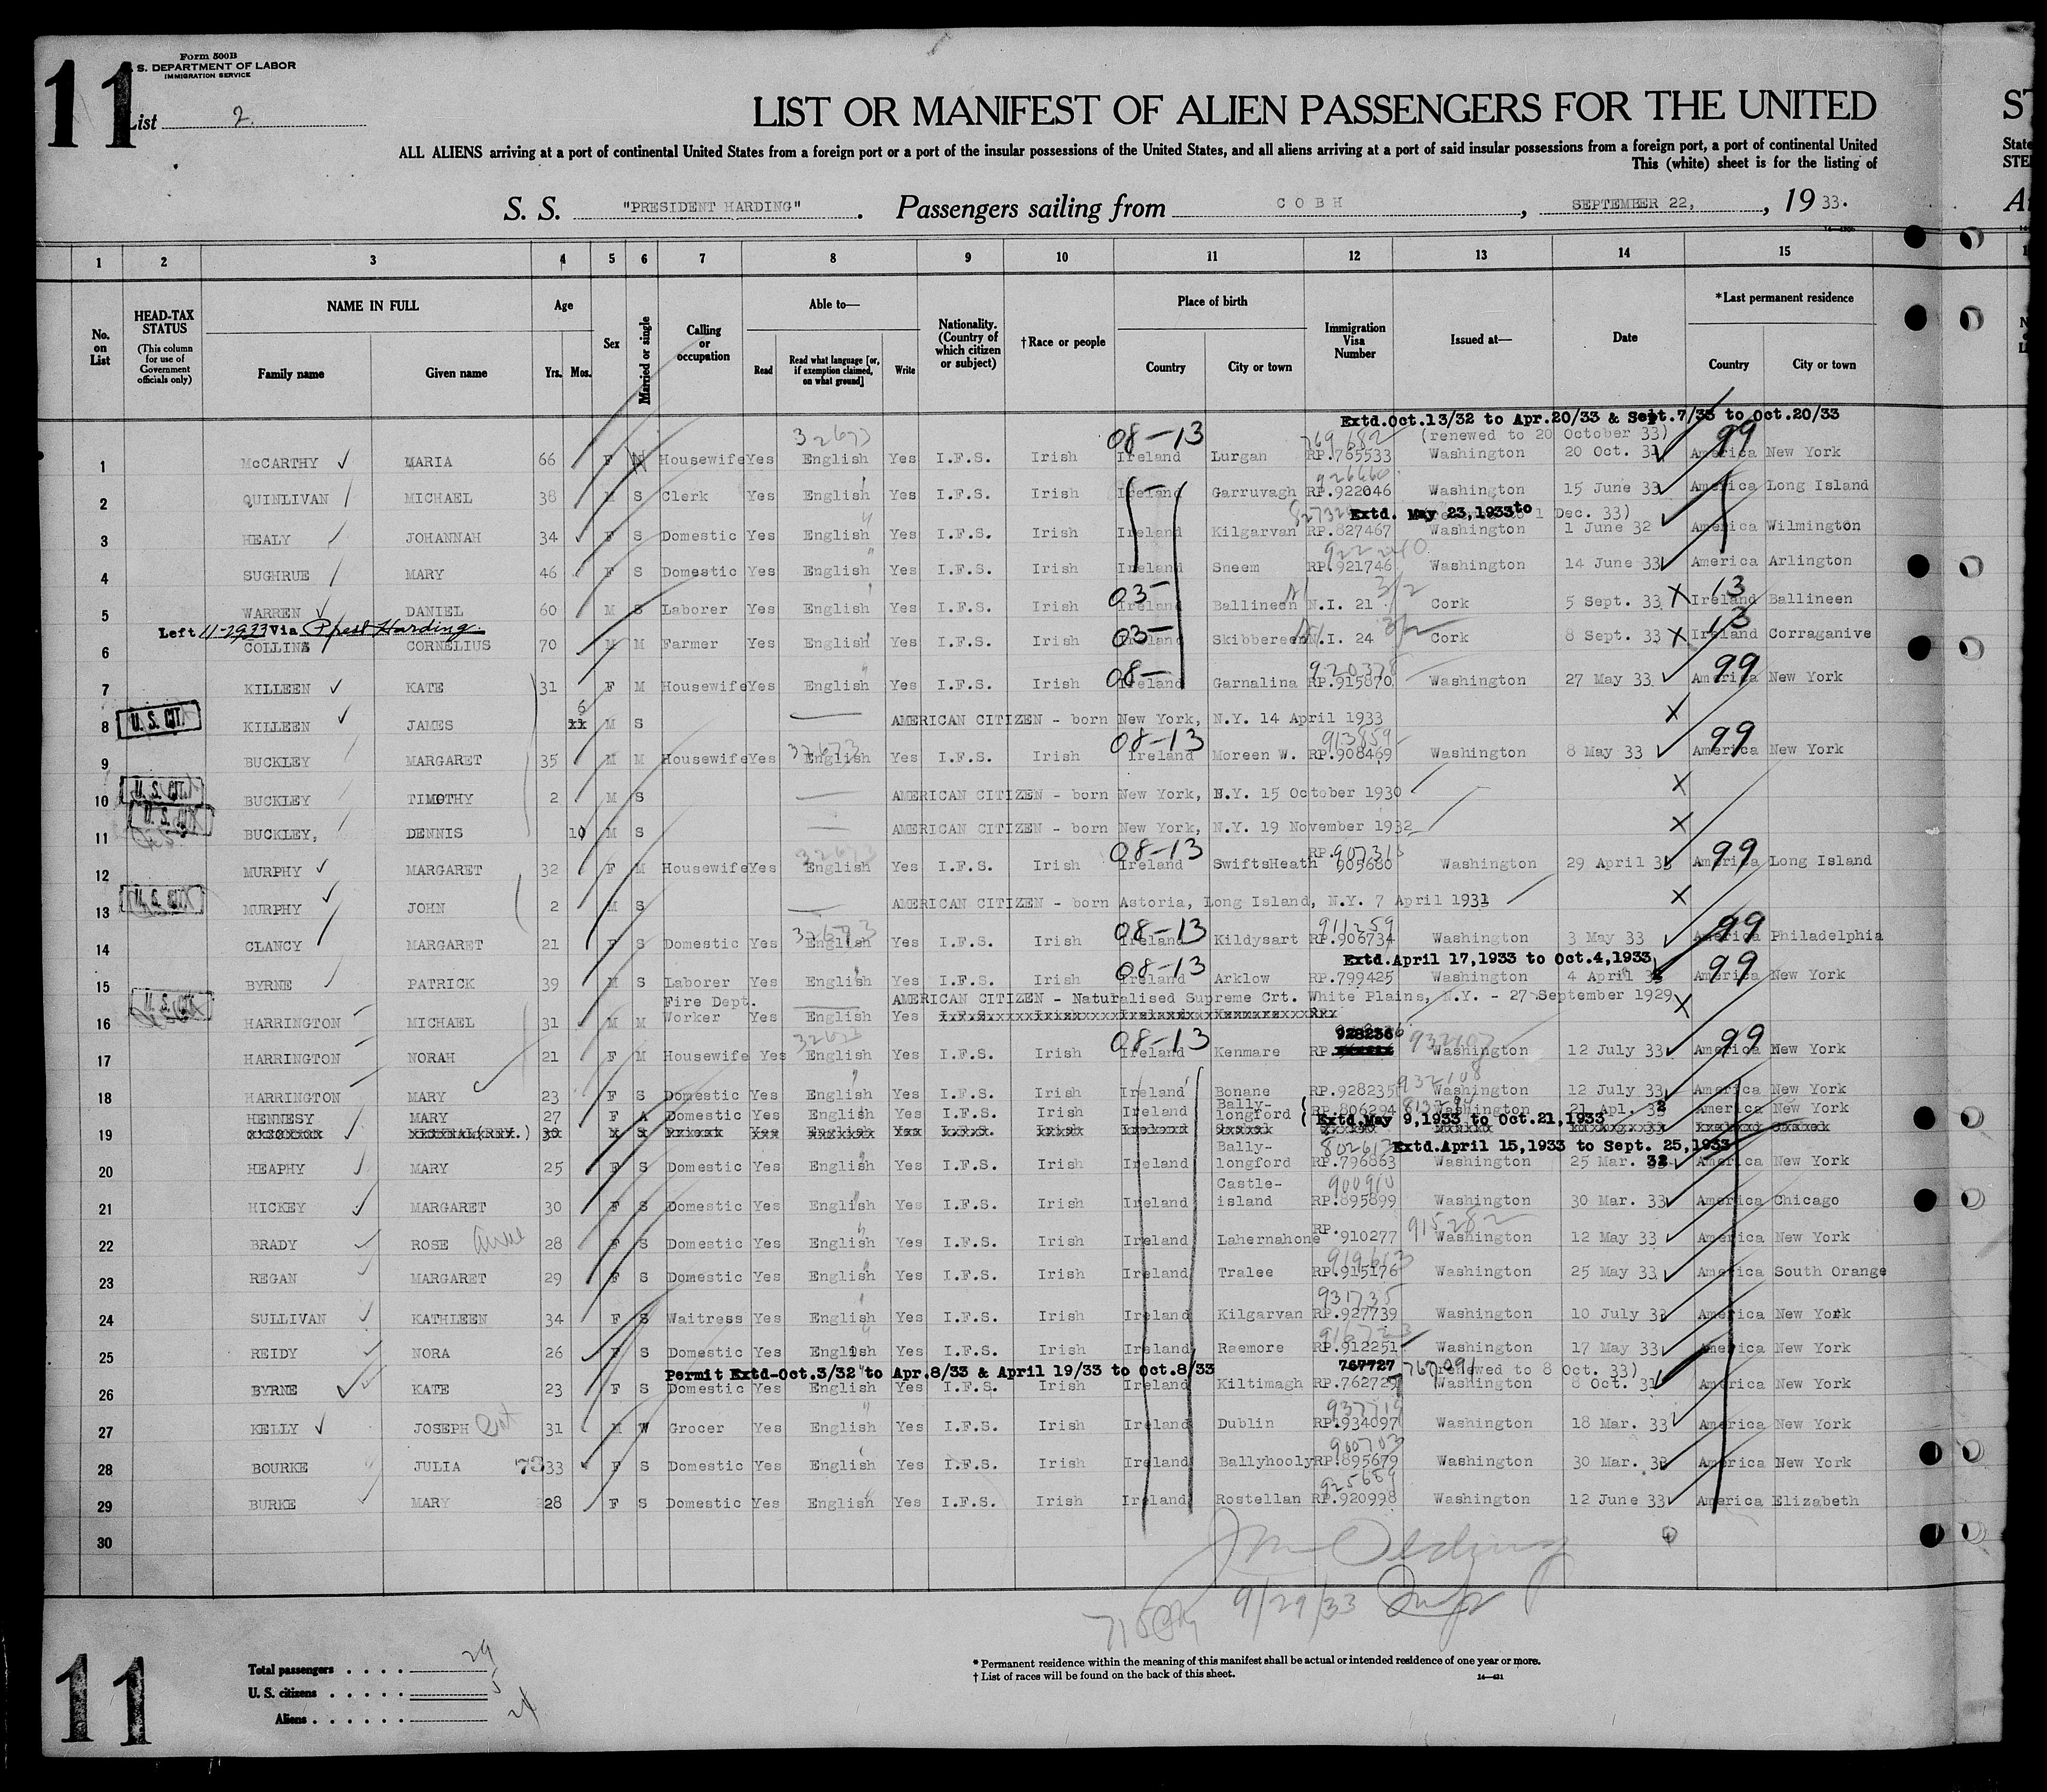 11
Form 500B
S. DEPARTMENT OF LABOR
IMMIGRATION SERVICE
List 2.
LIST OR MANIFEST OF ALIEN PASSENGERS FOR THE UNITED
ST
ALL ALIENS arriving at a port of continental United States from a foreign port or a port of the insular possessions of the United States, and all aliens arriving at a port of said insular possessions from a foreign port, a port of continental United
State
This (white) sheet is for the listing of
S. S. "PRESIDENT HARDING". Passengers sailing from COBH, SEPTEMBER 22, , 1933.
1 2 3 4 5 6 7 8 9 10 11 12 13 14 15
No. on List
HEAD-TAX STATUS
(This column for use of Government officials only)
NAME IN FULL
Family name Given name
Age
Yrs. Mos.
Sex
Married or single
Calling or occupation
Able to—
Read
Read what language [or, if exemption claimed, on what ground]
Write
Nationality. (Country of which citizen or subject)
†Race or people
Place of birth
Country City or town
Immigration Visa Number
Issued at—
Date
*Last permanent residence
Country City or town
Extd.Oct.13/32 to Apr.20/33 & Sept.7/33 to Oct.20/33
32673 08-13 769682 (renewed to 20 October 33) 99
1 McCARTHY MARIA 66 F Housewife Yes English Yes I.F.S. Irish Ireland Lurgan RP.765533 Washington 20 Oct. America New York
926660
2 QUINLIVAN MICHAEL 38 M S Clerk Yes English Yes I.F.S. Irish Ireland Garruvagh RP.922046 Washington 15 June 33 America Long Island
Extd. May 23,1933 to 1 Dec. 33)
3 HEALY JOHANNAH 34 F S Domestic Yes English Yes I.F.S. Irish Ireland Kilgarvan RP.827467 Washington 1 June 32 America Wilmington
4 SUGHRUE MARY 46 F S Domestic Yes English Yes I.F.S. Irish Ireland Sneem RP.921746 Washington 14 June 33 America Arlington
03- 3/2 13
5 WARREN DANIEL 60 M S Laborer Yes English Yes I.F.S. Irish Ireland Ballineen N.I. 21 Cork 5 Sept. 33 X Ireland Ballineen
Left 11-29-33 Via Prest Harding. 03- 3/2 13
6 COLLINS CORNELIUS 70 M M Farmer Yes English Yes I.F.S. Irish Ireland Skibbereen N.I. 24 Cork 8 Sept. 33 X Ireland Corraganive
08- 920378 99
7 KILLEEN KATE 31 F M Housewife Yes English Yes I.F.S. Irish Ireland Garnalina RP.915870 Washington 27 May 33 America New York
U. S. CIT.
8 KILLEEN JAMES 6 M S AMERICAN CITIZEN - born New York, N.Y. 14 April 1933 X
32673 08-13 913859 99
9 BUCKLEY MARGARET 35 M M Housewife Yes English Yes I.F.S. Irish Ireland Moreen W. RP.908469 Washington 8 May 33 America New York
U. S. CIT.
10 BUCKLEY TIMOTHY 2 M S AMERICAN CITIZEN - born New York, N.Y. 15 October 1930 X
U. S. CIT.
11 BUCKLEY, DENNIS 10 M S AMERICAN CITIZEN - born New York, N.Y. 19 November 1932 X
32673 08-13 RP. 99
12 MURPHY MARGARET 32 F M Housewife Yes English Yes I.F.S. Irish Ireland SwiftsHeath Washington 29 April 33 America Long Island
U. S. CIT.
13 MURPHY JOHN 2 M S AMERICAN CITIZEN - born Astoria, Long Island, N.Y. 7 April 1931 X
32673 08-13 911259 99
14 CLANCY MARGARET 21 F S Domestic Yes English Yes I.F.S. Irish Ireland Kildysart RP.906734 Washington 3 May 33 America Philadelphia
Extd.April 17,1933 to Oct.4,1933
08-13 99
15 BYRNE PATRICK 39 M S Laborer Yes English Yes I.F.S. Irish Ireland Arklow RP.799425 Washington 4 April America New York
U. S. CIT.
Fire Dept. AMERICAN CITIZEN - Naturalised Supreme Crt. White Plains, N.Y. - 27 September 1929 X
16 HARRINGTON MICHAEL 31 M M Worker Yes English Yes
08-13 928236 99
17 HARRINGTON NORAH 21 F M Housewife Yes English Yes I.F.S. Irish Ireland Kenmare RP. Washington 12 July 33 America New York
932108
18 HARRINGTON MARY 23 F S Domestic Yes English Yes I.F.S. Irish Ireland Bonane RP.928235 Washington 12 July 33 America New York
HENNESY MARY 27 F A Domestic Yes English Yes I.F.S. Irish Ireland Bally-longford RP.806294 Washington 21 Apl. America New York
19 (Extd.May 9,1933 to Oct.21,1933
Extd.April 15,1933 to Sept. 25,1933
20 HEAPHY MARY 25 F S Domestic Yes English Yes I.F.S. Irish Ireland Bally-longford RP.796863 Washington 25 Mar. 32 America New York
900910
21 HICKEY MARGARET 30 F S Domestic Yes English Yes I.F.S. Irish Ireland Castle-island RP.895899 Washington 30 Mar. 33 America Chicago
915282
22 BRADY ROSE Anne 28 F S Domestic Yes English Yes I.F.S. Irish Ireland Lahernahone RP.910277 Washington 12 May 33 America New York
23 REGAN MARGARET 29 F S Domestic Yes English Yes I.F.S. Irish Ireland Tralee RP.915176 Washington 25 May 33 America South Orange
931735
24 SULLIVAN KATHLEEN 34 F S Waitress Yes English Yes I.F.S. Irish Ireland Kilgarvan RP.927739 Washington 10 July 33 America New York
916723
25 REIDY NORA 26 F S Domestic Yes English Yes I.F.S. Irish Ireland Raemore RP.912251 Washington 17 May 33 America New York
Permit Extd-Oct.3/32 to Apr.8/33 & April 19/33 to Oct.8/33 767727 767091 (renewed to 8 Oct. 33)
26 BYRNE KATE 23 F S Domestic Yes English Yes I.F.S. Irish Ireland Kiltimagh RP.762725 Washington 8 Oct. 31 America New York
937719
27 KELLY JOSEPH 31 M W Grocer Yes English Yes I.F.S. Irish Ireland Dublin RP.934097 Washington 18 Mar. 33 America New York
900703
28 BOURKE JULIA 73 33 F S Domestic Yes English Yes I.F.S. Irish Ireland Ballyhooly RP.895679 Washington 30 Mar. 33 America New York
925689
29 BURKE MARY 28 F S Domestic Yes English Yes I.F.S. Irish Ireland Rostellan RP.920998 Washington 12 June 33 America Elizabeth
30
9/29/33
11
Total passengers . . . . 29
U. S. citizens . . . . . 5
Aliens . . . . . . 24
* Permanent residence within the meaning of this manifest shall be actual or intended residence of one year or more.
† List of races will be found on the back of this sheet.